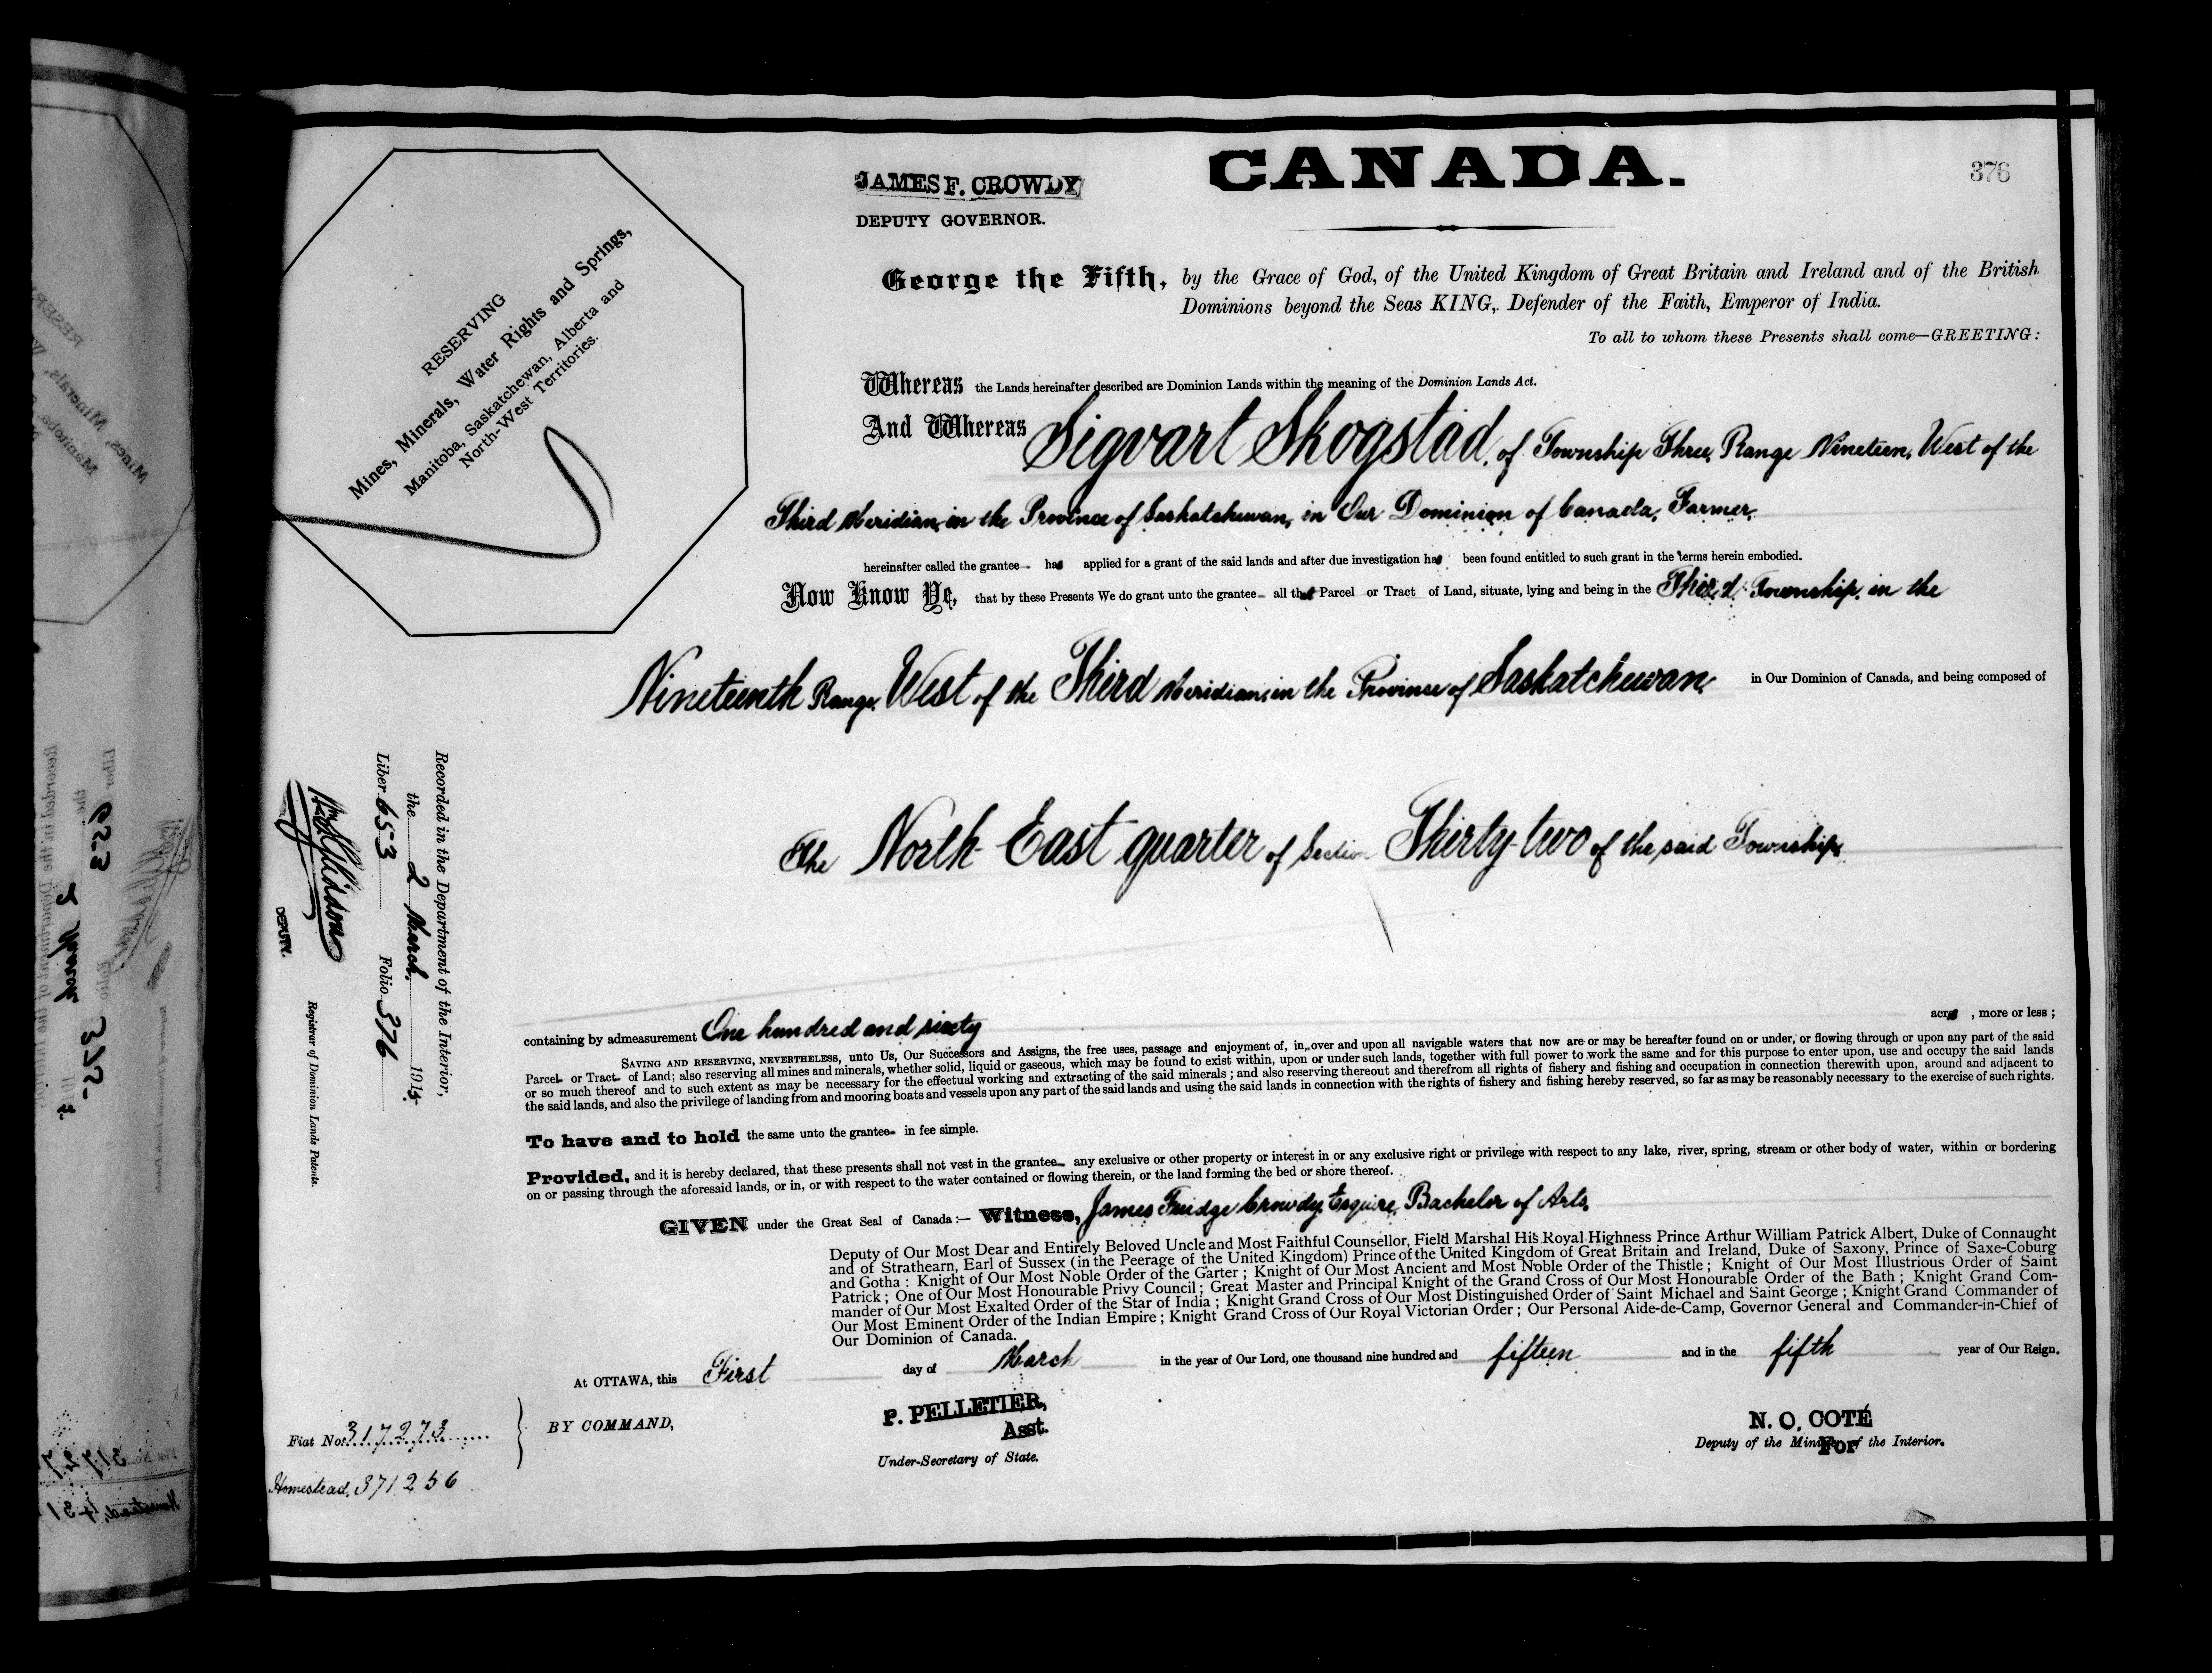 CANADA.
376
JAMES F. CROWDY
DEPUTY GOVERNOR.
RESERVING
Mines, Minerals, Water Rights and Springs,
Manitoba, Saskatchewan, Alberta and
North-West Territories.
George the Fifth, by the Grace of God, of the United Kingdom of Great Britain and Ireland and of the British
Dominions beyond the Seas KING, Defender of the Faith, Emperor of India.
To all to whom these Presents shall come—GREETING:
Whereas the Lands hereinafter described are Dominion Lands within the meaning of the Dominion Lands Act.
And Whereas Sigvart Skogstad, of Township Three, Range Nineteen, West of the
Third Meridian, in the Province of Saskatchewan, in Our Dominion of Canada, Farmer,
hereinafter called the grantee has applied for a grant of the said lands and after due investigation has been found entitled to such grant in the terms herein embodied.
Now Know Ye, that by these Presents We do grant unto the grantee all that Parcel or Tract of Land, situate, lying and being in the Third Township, in the
Nineteenth Range, West of the Third Meridian, in the Province of Saskatchewan, in Our Dominion of Canada, and being composed of
The North East quarter of Section Thirty-two of the said Township,
containing by admeasurement One hundred and sixty acres, more or less;
SAVING AND RESERVING, NEVERTHELESS, unto Us, Our Successors and Assigns, the free uses, passage and enjoyment of, in, over and upon all navigable waters that now are or may be hereafter found on or under, or flowing through or upon any part of the said
Parcel or Tract of Land; also reserving all mines and minerals, whether solid, liquid or gaseous, which may be found to exist within, upon or under such lands, together with full power to work the same and for this purpose to enter upon, use and occupy the said lands
or so much thereof and to such extent as may be necessary for the effectual working and extracting of the said minerals; and also reserving thereout and therefrom all rights of fishery and fishing and occupation in connection therewith upon, around and adjacent to
the said lands, and also the privilege of landing from and mooring boats and vessels upon any part of the said lands and using the said lands in connection with the rights of fishery and fishing hereby reserved, so far as may be reasonably necessary to the exercise of such rights.
To have and to hold the same unto the grantee in fee simple.
Provided, and it is hereby declared, that these presents shall not vest in the grantee any exclusive or other property or interest in or any exclusive right or privilege with respect to any lake, river, spring, stream or other body of water, within or bordering
on or passing through the aforesaid lands, or in, or with respect to the water contained or flowing therein, or the land forming the bed or shore thereof.
GIVEN under the Great Seal of Canada:— Witness, James Fuidge Crowdy, Esquire, Bachelor of Arts,
Deputy of Our Most Dear and Entirely Beloved Uncle and Most Faithful Counsellor, Field Marshal His Royal Highness Prince Arthur William Patrick Albert, Duke of Connaught
and of Strathearn, Earl of Sussex (in the Peerage of the United Kingdom) Prince of the United Kingdom of Great Britain and Ireland, Duke of Saxony, Prince of Saxe-Coburg
and Gotha: Knight of Our Most Noble Order of the Garter; Knight of Our Most Ancient and Most Noble Order of the Thistle; Knight of Our Most Illustrious Order of Saint
Patrick; One of Our Most Honourable Privy Council; Great Master and Principal Knight of the Grand Cross of Our Most Honourable Order of the Bath; Knight Grand Com-
mander of Our Most Exalted Order of the Star of India; Knight Grand Cross of Our Most Distinguished Order of Saint Michael and Saint George; Knight Grand Commander of
Our Most Eminent Order of the Indian Empire; Knight Grand Cross of Our Royal Victorian Order; Our Personal Aide-de-Camp, Governor General and Commander-in-Chief of
Our Dominion of Canada.
At OTTAWA, this First day of March in the year of Our Lord, one thousand nine hundred and fifteen and in the fifth year of Our Reign.
BY COMMAND,
P. PELLETIER,
Asst.
Under-Secretary of State.
N. O. COTÉ
For
Deputy of the Minister of the Interior.
Fiat No. 317273
Homestead, 371256
Recorded in the Department of the Interior,
the 2 March, 1915
Liber 653 Folio 376
DEPUTY.
Registrar of Dominion Lands Patents.